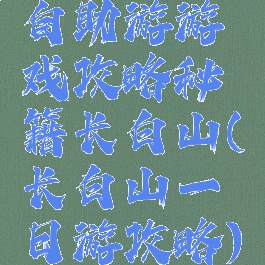 自助游游
戏攻略秘
籍长白山(
长白山一
日游攻略)